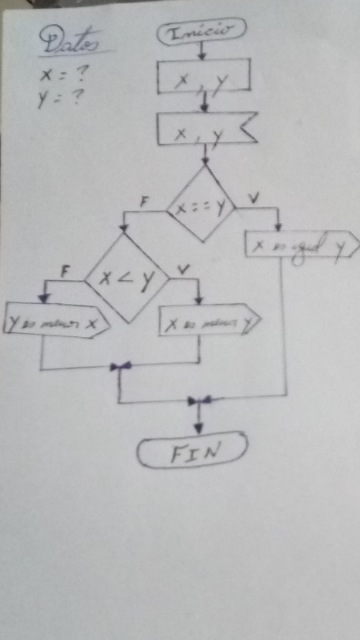 Datos
x = ?
y = ?
Inicio
x , y
x , y
x == y
F
V
x es igual y
x < y
F
V
y es menor x
x es menor y
FIN